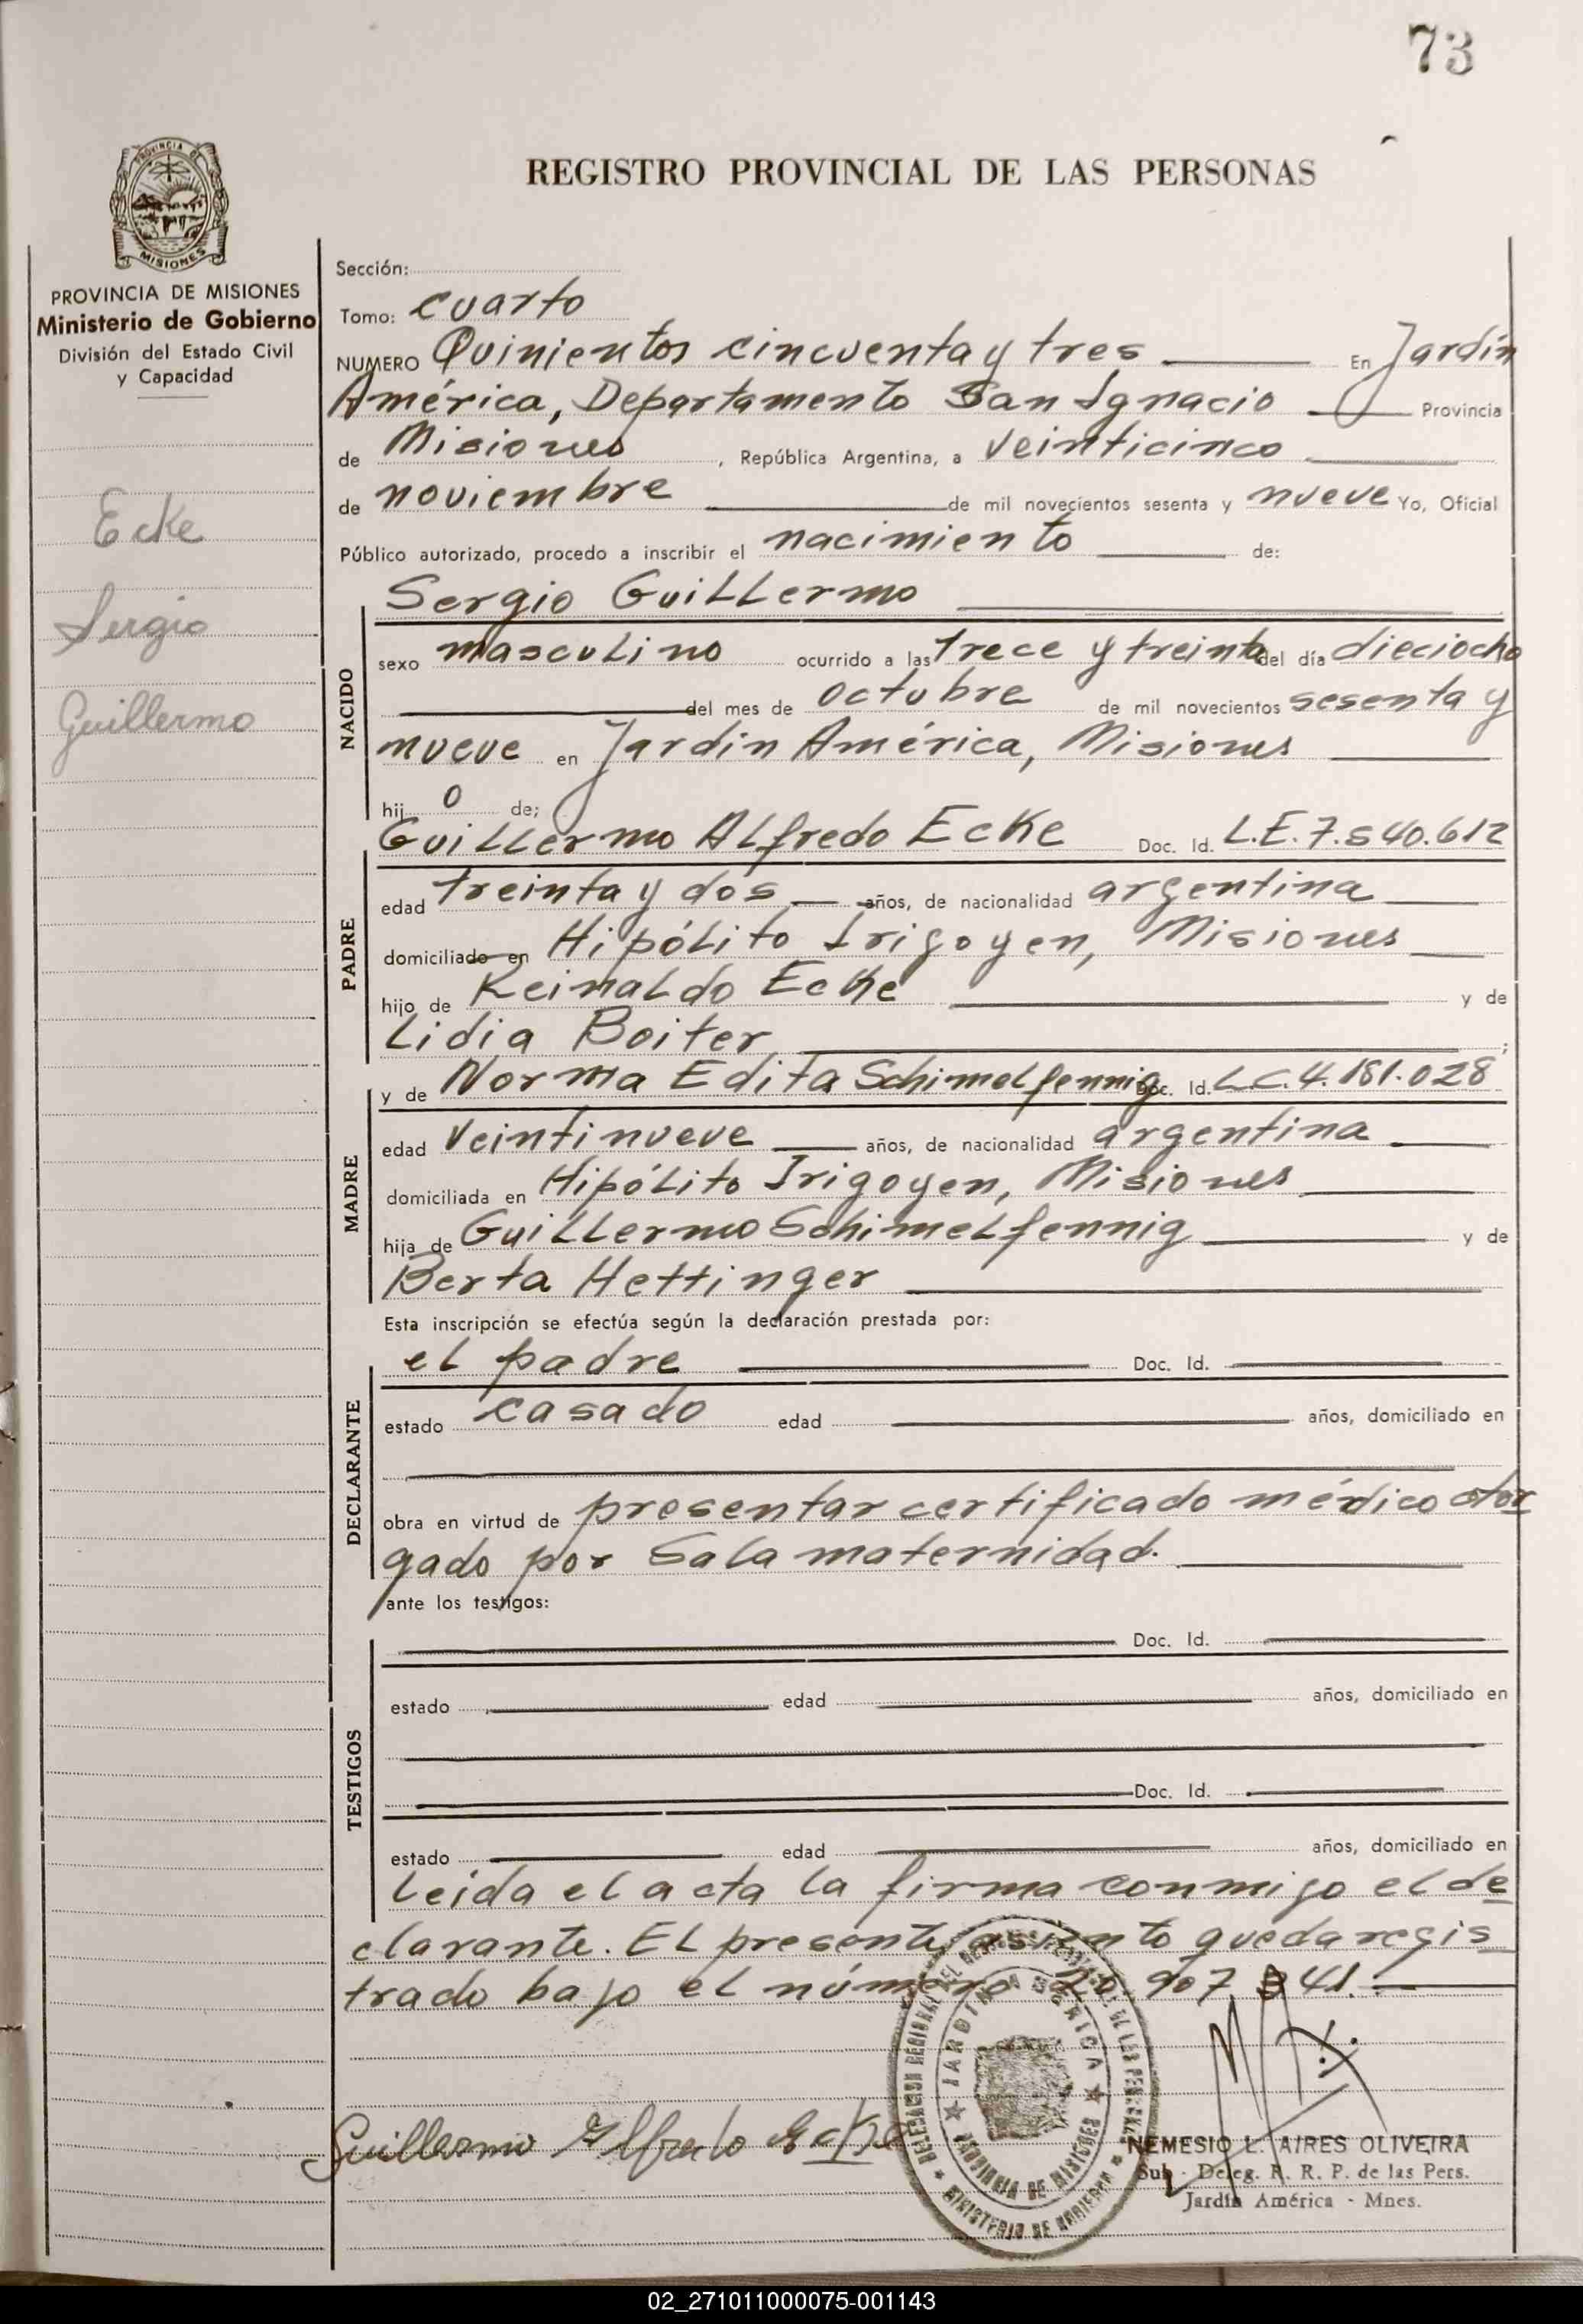 73
PROVINCIA DE
MISIONES
REGISTRO PROVINCIAL DE LAS PERSONAS
PROVINCIA DE MISIONES
Ministerio de Gobierno
División del Estado Civil
y Capacidad
Ecke
Sergio
Guillermo
Sección:
Tomo: cuarto
NUMERO Quinientos cincuenta y tres En Jardín
América, Departamento San Ignacio Provincia
de Misiones, República Argentina, a veinticinco
de noviembre de mil novecientos sesenta y nueve Yo, Oficial
Público autorizado, procedo a inscribir el nacimiento de:
NACIDO
Sergio Guillermo
sexo masculino ocurrido a las trece y treinta del día dieciocho
del mes de octubre de mil novecientos sesenta y
nueve en Jardín América, Misiones
hij o de;
PADRE
Guillermo Alfredo Ecke Doc. Id. L.E. 7.540.612
edad treinta y dos años, de nacionalidad argentina
domiciliado en Hipólito Irigoyen, Misiones
hijo de Reinaldo Ecke y de
Lidia Boiter ;
MADRE
y de Norma Edita Schimelfennig Doc. Id. L.C. 4.181.028
edad veintinueve años, de nacionalidad argentina
domiciliada en Hipólito Irigoyen, Misiones
hija de Guillermo Schimelfennig y de
Berta Hettinger
Esta inscripción se efectúa según la declaración prestada por:
DECLARANTE
el padre Doc. Id.
estado casado edad años, domiciliado en
obra en virtud de presentar certificado médico otor
gado por Sala maternidad.
ante los testigos:
TESTIGOS
Doc. Id.
estado edad años, domiciliado en
Doc. Id.
estado edad años, domiciliado en
Leida el acta la firma conmigo el de
clarante. El presente asiento queda regis
trado bajo el número 20.907.341.
Guillermo Alfredo Ecke
DELEGACION REGIONAL DEL REGISTRO PROVINCIAL DE LAS PERSONAS
JARDIN AMERICA
PROVINCIA DE MISIONES
MINISTERIO DE GOBIERNO
NEMESIO L. AIRES OLIVEIRA
Sub - Deleg. R. R. P. de las Pers.
Jardín América - Mnes.
02_271011000075-001143